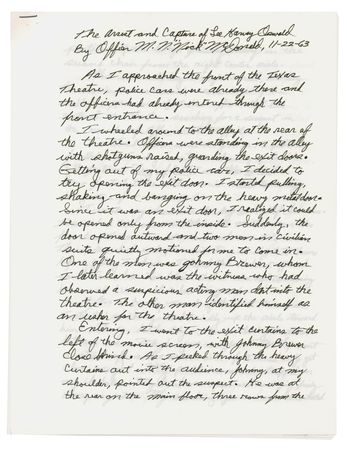 The Arrest and Capture of Lee Harvey Oswald
By Officer M. N. "Nick" McDonald, 11-22-63
As I approached the front of the Texas
Theatre, police cars were already there and
the officers had already entered through the
front entrance.
I wheeled around to the alley at the rear of
the theatre. Officers were standing in the alley
with shotguns raised, guarding the exit doors.
Getting out of my police car, I decided to
try opening the exit door. I started pulling,
shaking and banging on the heavy metal door.
Since it was an exit door, I realized it could
be opened only from the inside. Suddenly, the
door opened outward and two men in civilian
suits quietly motioned for me to come in.
One of the men was Johnny Brewer, whom
I later learned was the witness who had
observed a suspicious acting man into the
theatre. The other man identified himself as
an usher for the theatre.
Entering, I went to the exit curtains to the
left of the movie screen, with Johnny Brewer
close behind. As I peeked through the heavy
curtains out into the audience, Johnny, at my
shoulder, pointed out the suspect. He was at
the rear on the main floor, three rows from the